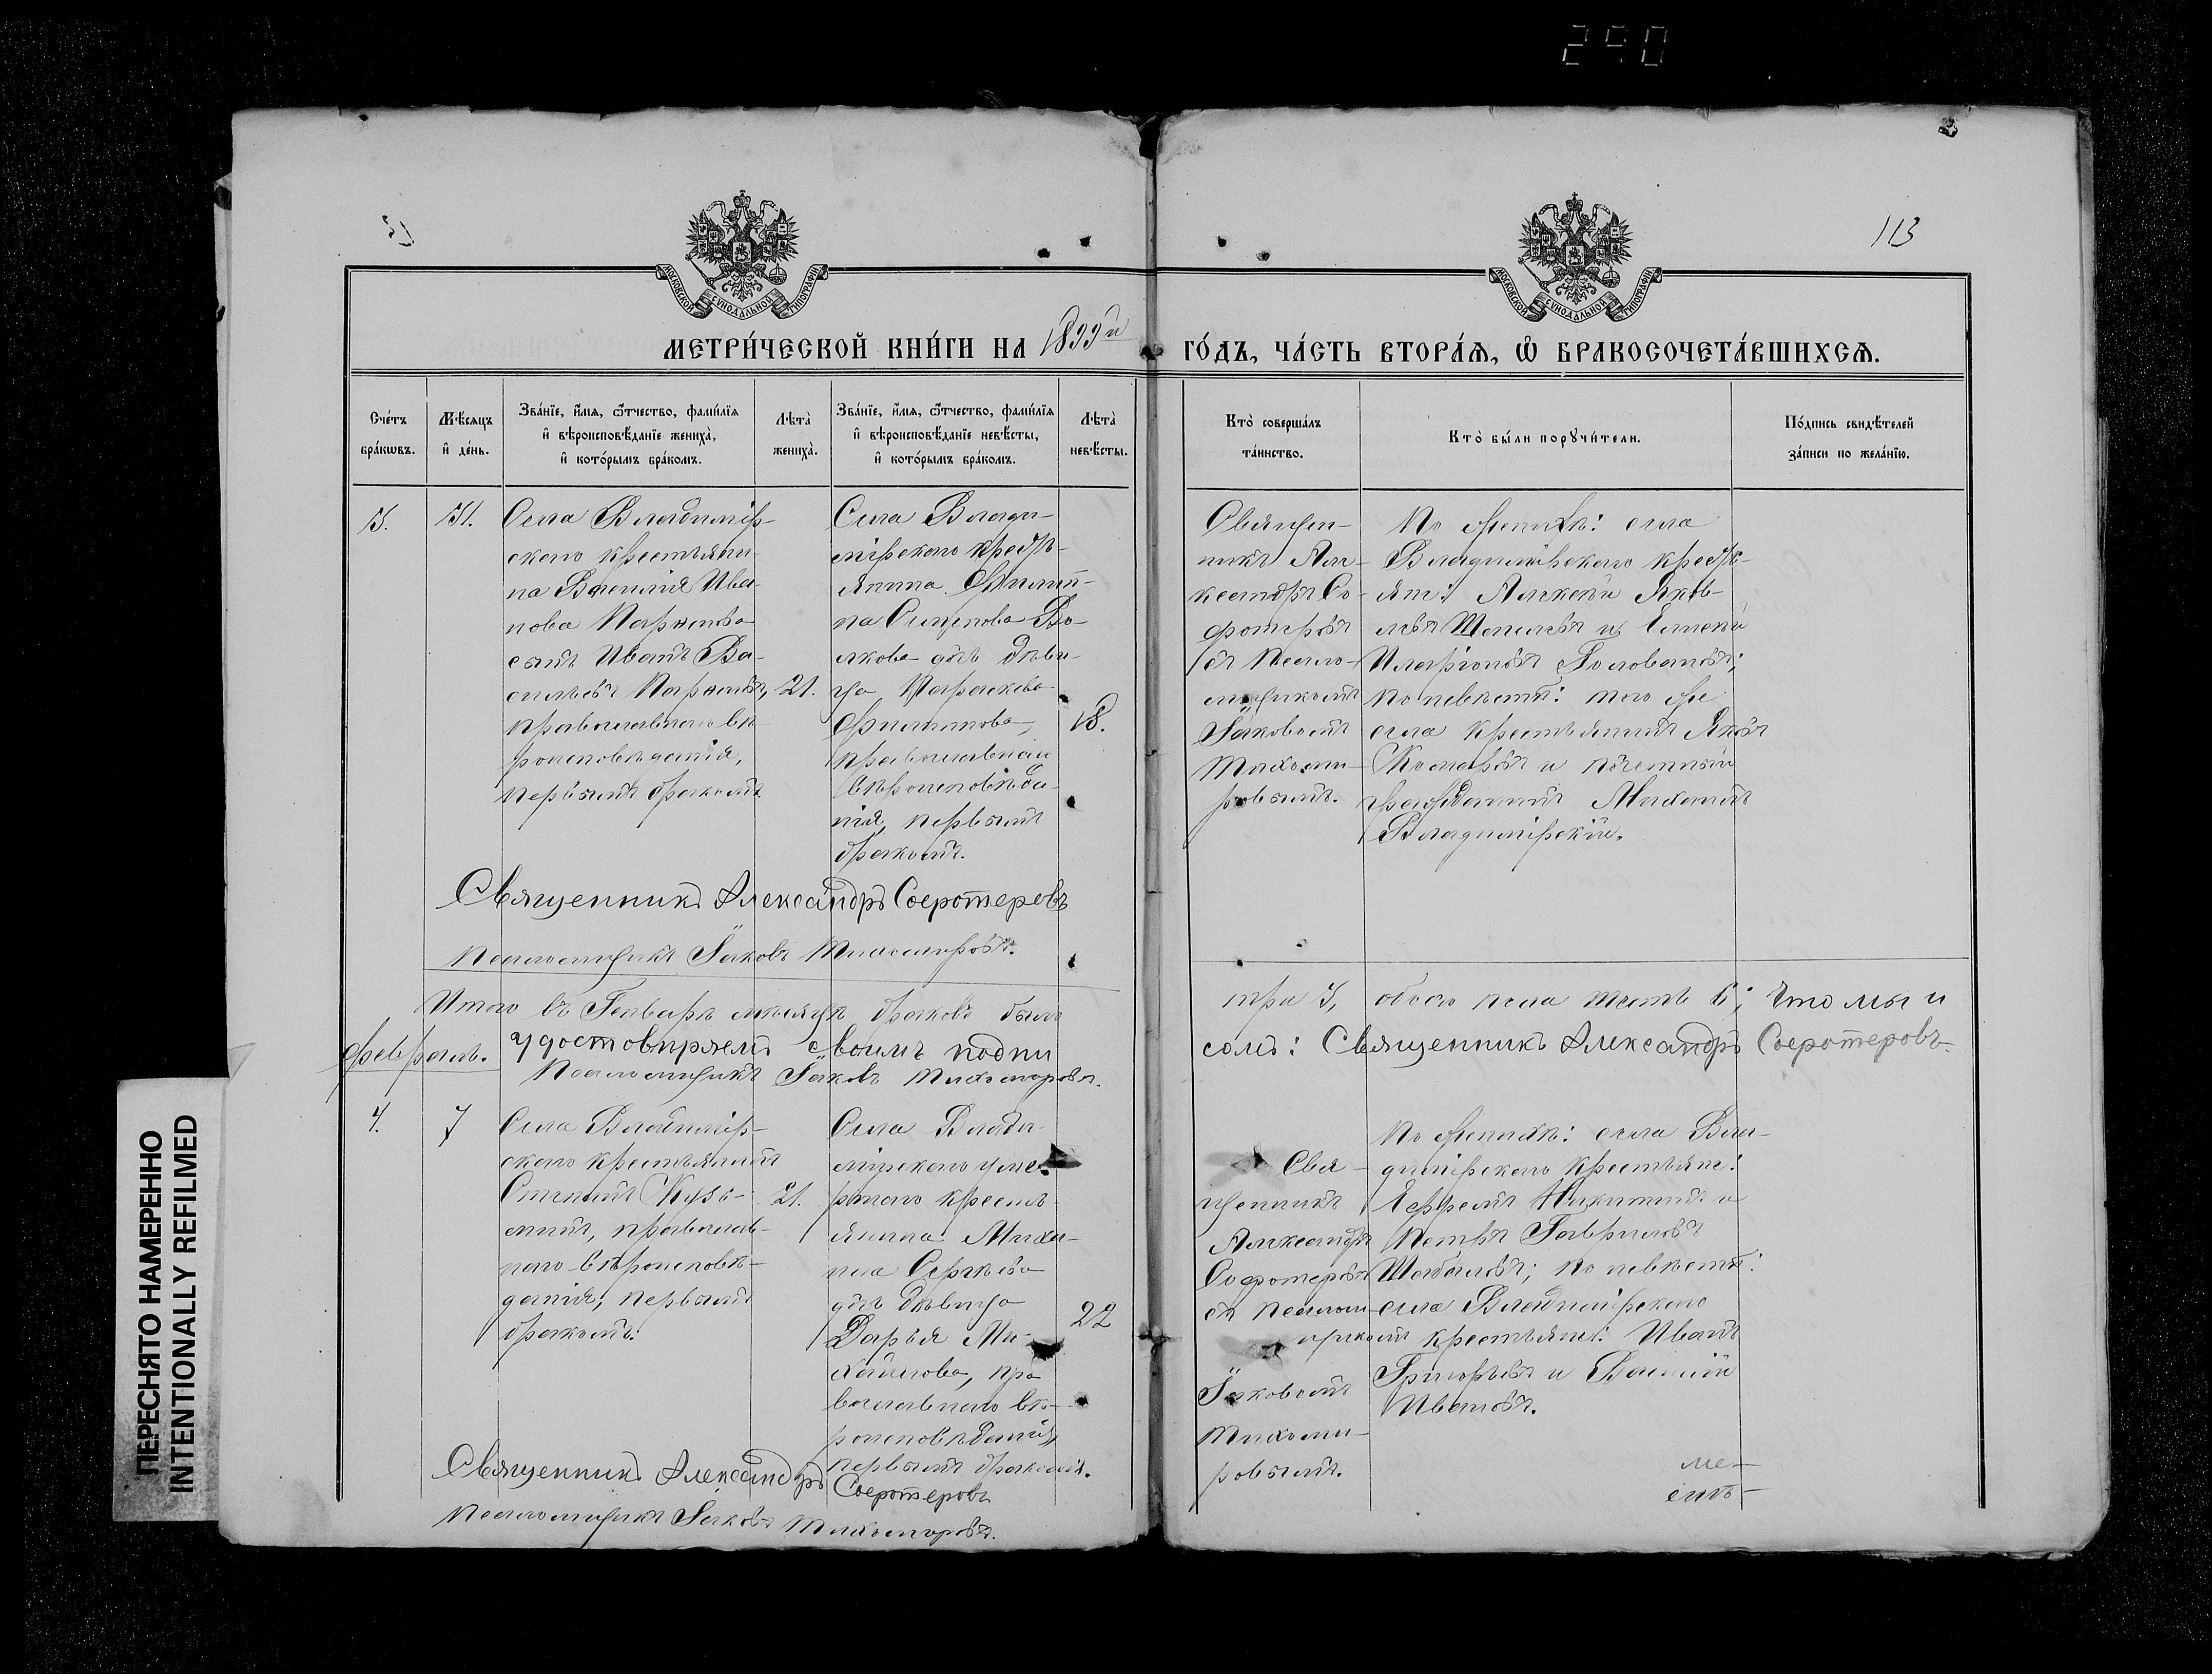 290
113
МОСКОВСКОЙ СѴНОДАЛЬНОЙ ТИПОГРАФІИ
МОСКОВСКОЙ СѴНОДАЛЬНОЙ ТИПОГРАФІИ
МЕТРИ́ЧЕСКОЙ КНИ́ГИ НА 1899й ГО́ДЪ, ЧА́СТЬ ВТОРА́Я, Ѡ҆ БРАКОСОЧЕТА́ВШИХСЯ.
Сче́тъ
бра́кѡвъ.
Мѣ́сяцъ
и҆ де́нь.
Зва́нїе, и҆́мя, ѻ҆́тчество, фами́лїя
и҆ вѣроисповѣ́данїе жениха̀,
и҆ кото́рымъ бра́комъ.
Лѣ́та̀
жениха̀.
Зва́нїе, и҆́мя, ѻ҆́тчество, фами́лїя
и҆ вѣроисповѣ́данїе невѣ́сты,
и҆ кото́рымъ бра́комъ.
Лѣ́та̀
невѣ́сты.
Кто̀ соверша́лъ
та́инство.
Кто̀ бы́ли порꙋчи́тели.
По́дпись свидѣ́телей
за́писи по жела́нїю.
3.
31.
Села Владимір-
скаго крестьяни-
на Василія Ива-
нова
сынъ Иванъ Ва-
сильевъ
православнаго вѣ-
роисповѣданія,
первымъ бракомъ.
21.
Села Влади-
мірскаго кресть-
янина Филип-
па
дочь дѣви-
ца Параскева
Филиппова,
православнаго
вѣроисповѣда-
нія, первымъ
бракомъ.
18.
Священ-
никъ Але-
ксандръ Со-
ѳотеровъ
съ псало-
мщикомъ
Іаковомъ
Тихоми-
ровымъ.
По женихѣ: села
Владимірскаго кресть-
яне: Алексѣй Яков-
левъ и Алексѣй
Иларіоновъ Головановъ;
по невѣстѣ: того же
села крестьянинъ Яковъ
Комаровъ и почетный
гражданинъ Михаилъ
Владимірскій.
Священникъ Александръ Сосротеровъ
Псаломщикъ Іаковъ Тихомировъ.
Итого въ Генварѣ мѣсяцѣ браковъ было три 3, обоего пола шесть 6; что мы и
удостовѣряемъ своимъ подписомъ: Священникъ Александръ Сосротеровъ
Псаломщикъ Іаковъ Тихомировъ.
Февраль.
4.
7
Села Владимір-
скаго крестьянинъ
Кузь-
минъ, православ-
наго вѣроисповѣ-
данія, первымъ
бракомъ.
21.
Села Влади-
мірскаго умер-
шаго кресть-
янина Миха-
ила Сергѣева
дочь дѣвица
Дарья Ми-
хайлова, пра-
вославнаго вѣ-
роисповѣданія,
первымъ бракомъ.
22
Свя-
щенникъ
Александръ
съ псалом-
щикомъ
Іаковомъ
Тихоми-
ровымъ.
По женихѣ: села Вла-
димірскаго крестьяне:
Ефремъ Никитинъ и
Петръ Гавриловъ
Шабаловъ; по невѣстѣ:
села Владимірскаго
крестьяне: Иванъ
Григорьевъ и Василій
Ивановъ.
Священникъ Александръ
Сосротеровъ
Псаломщикъ Іаковъ Тихомировъ.
ПЕРЕСНЯТО НАМЕРЕННО
INTENTIONALLY REFILMED